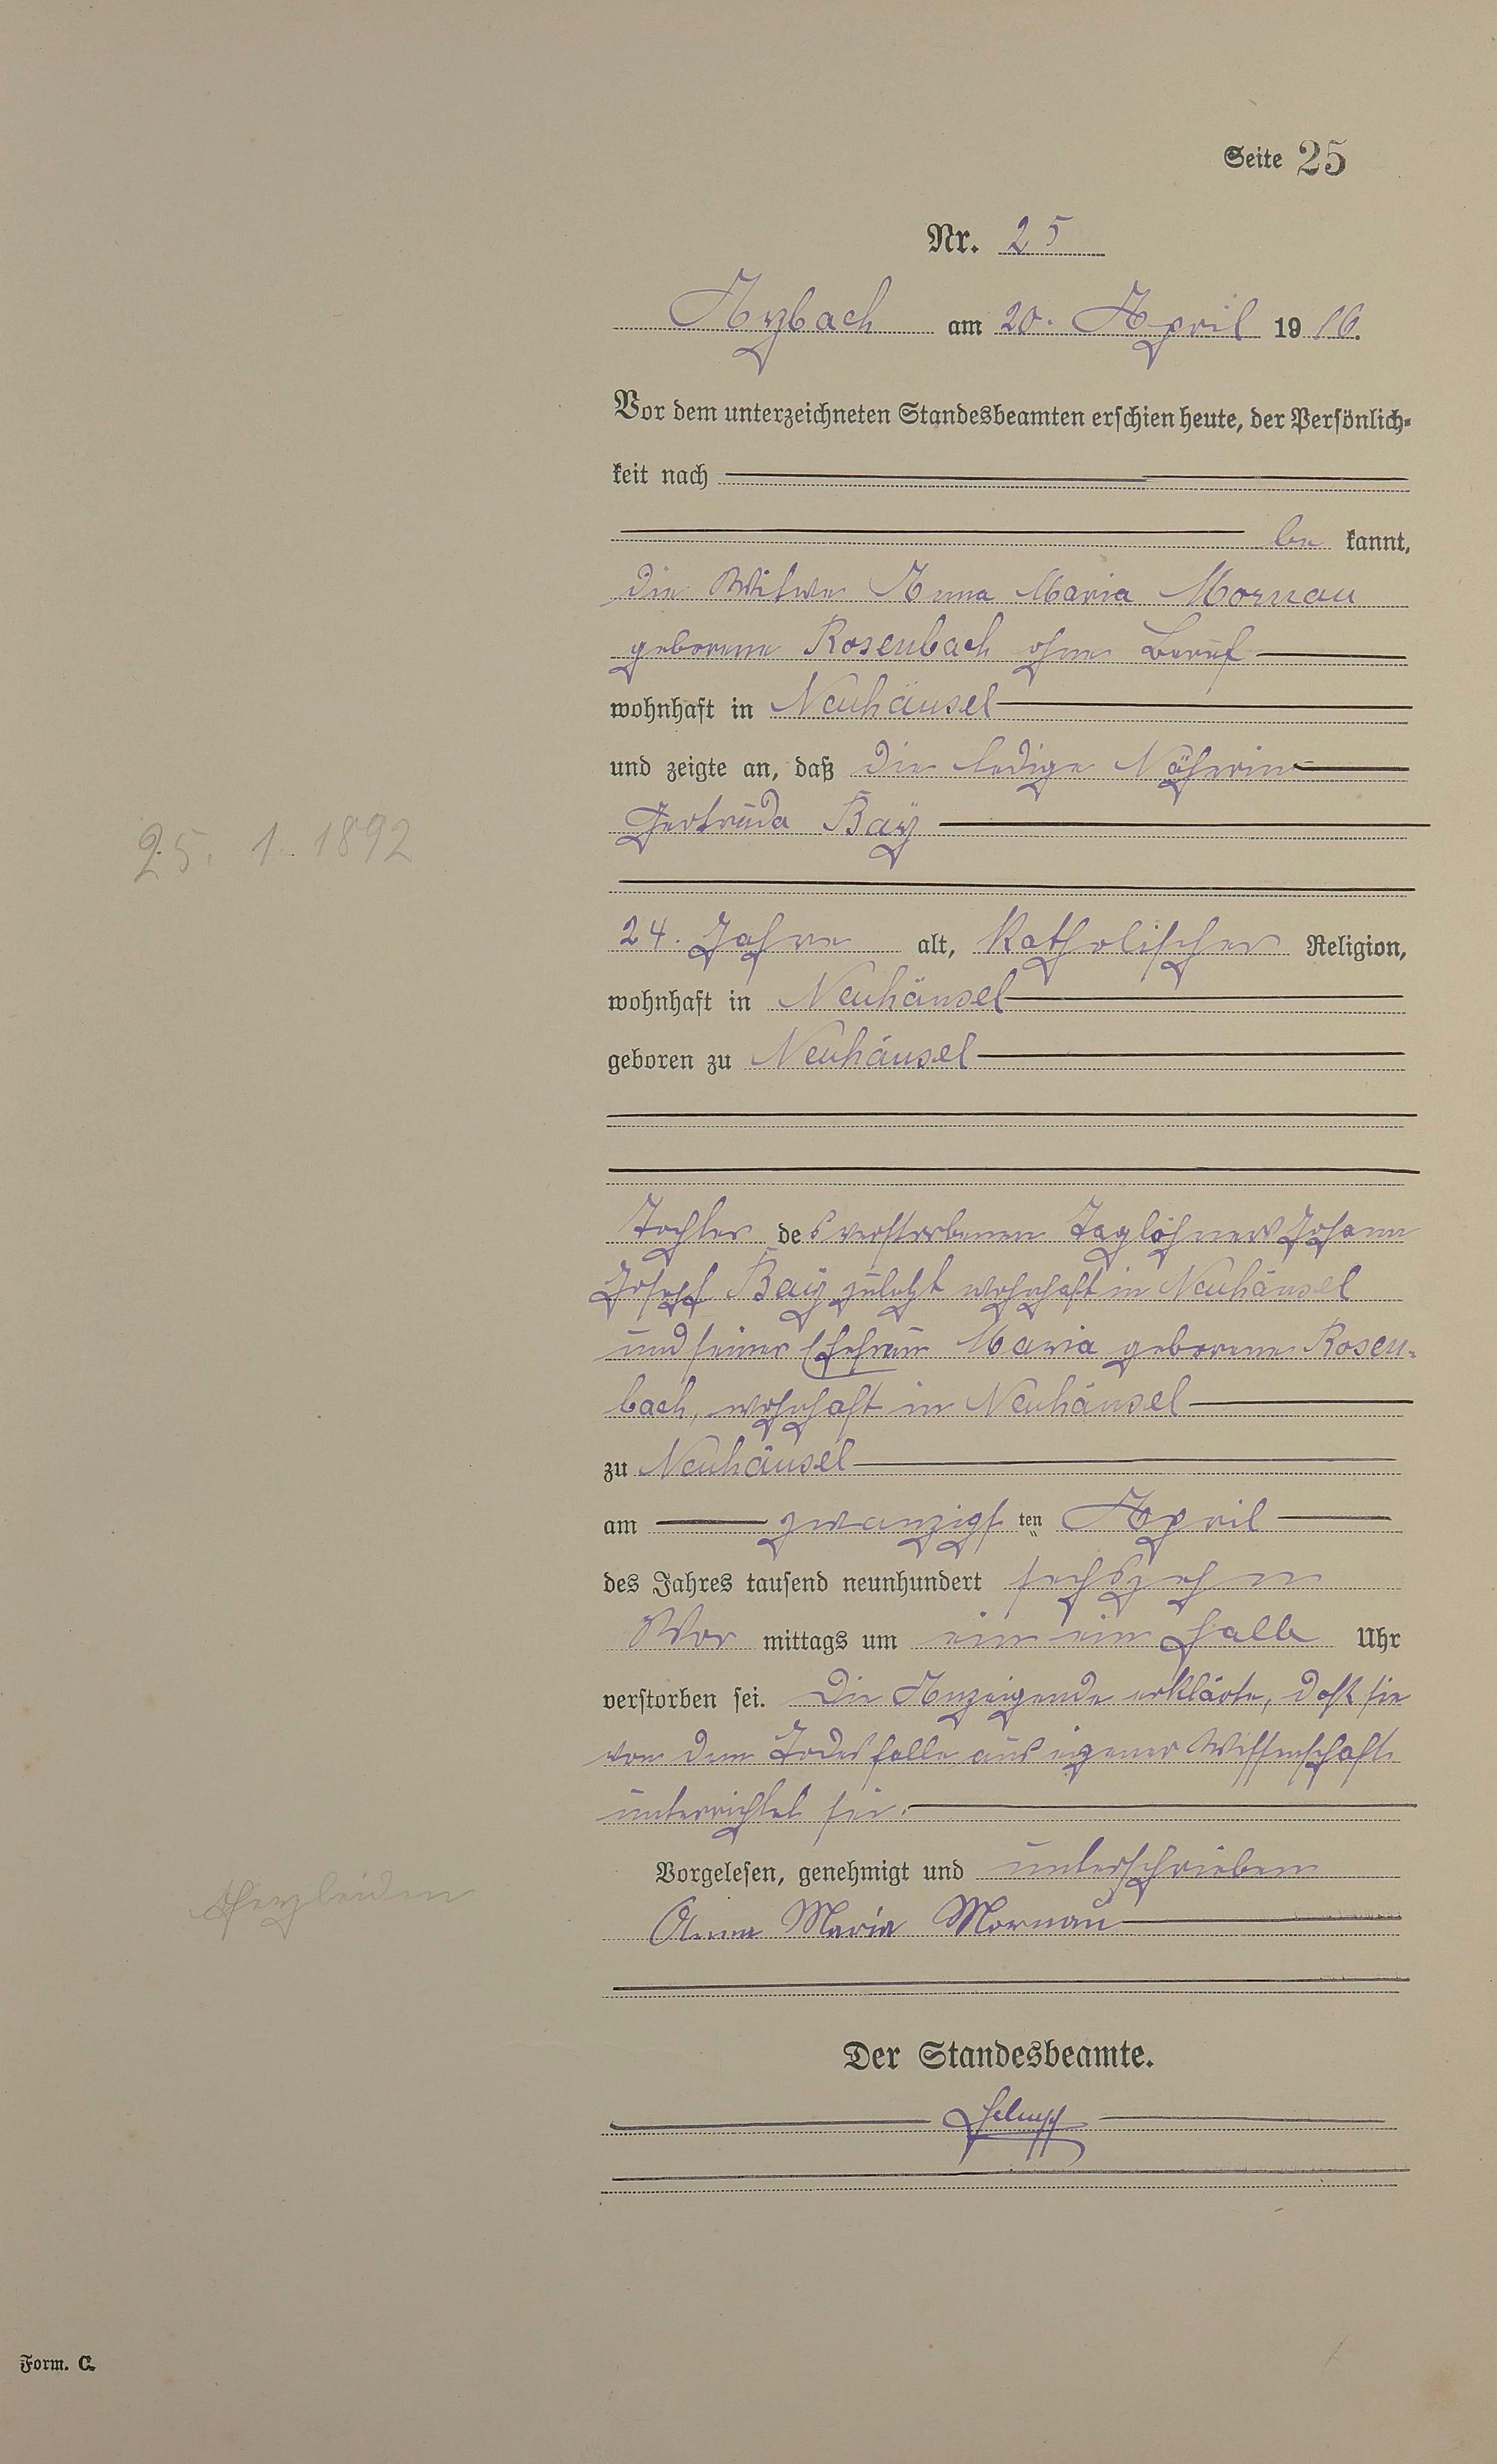 Seite 25
Nr. 25
Arzbach am 20. April 1916.
Vor dem unterzeichneten Standesbeamten erschien heute, der Persönlich-
keit nach
be kannt,
die Witwe Anna Maria Mornau
geborene Rosenbach ohne Beruf
wohnhaft in Neuhäusel
und zeigte an, daß die ledige Näherin
Gertruda Bay
25. 1. 1892
24. Jahre alt, Katholischer Religion,
wohnhaft in Neuhäusel
geboren zu Neuhäusel
Tochter des verstorbenen Taglöhners Johann
Josef Bay zuletzt wohnhaft in Neuhäusel
und seiner Ehefrau Maria geborene Rosen-
bach, wohnhaft in Neuhäusel
zu Neuhäusel
am zwanzigsten April
des Jahres tausend neunhundert sechszehn
Vor mittags um ein ein halb Uhr
verstorben sei. Die Anzeigende erklärte, daß sie
von dem Todesfalle aus eigener Wissenschaft
unterrichtet sei.
Vorgelesen, genehmigt und unterschrieben
Herzleiden
Anna Maria Mornau
Der Standesbeamte.
Form. C.